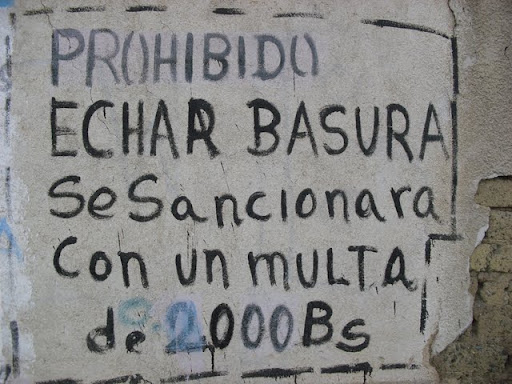 PROHIBIDO
ECHAR BASURA
Se Sancionara
Con un MULTA
de 2000Bs